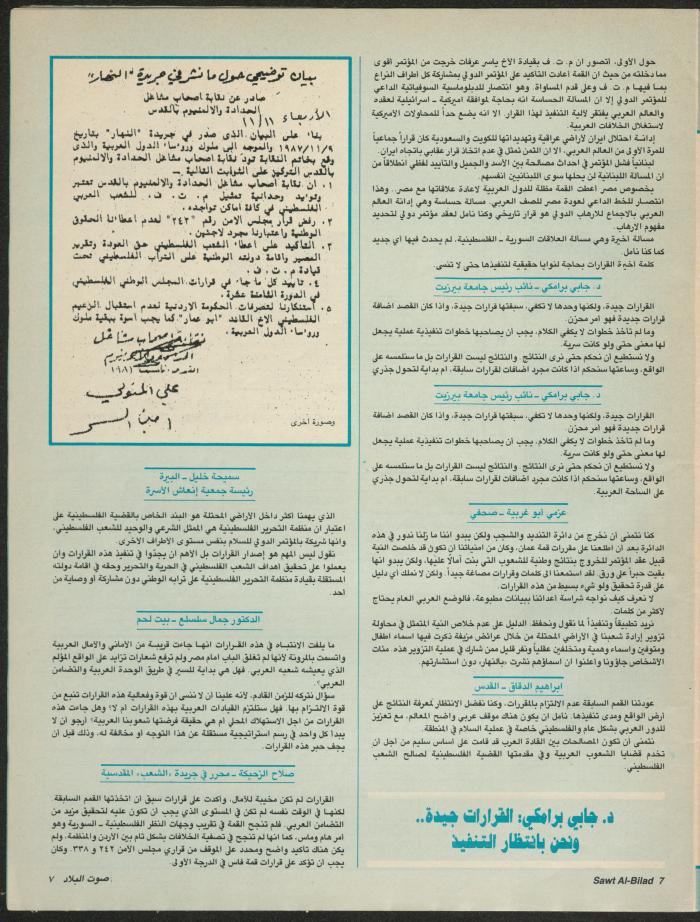 حول الأولى، أتصور ان م. ت. ف بقيادة الأخ ياسر عرفات خرجت من المؤتمر أقوى
مما دخلته من حيث ان القمة أعادت التأكيد على المؤتمر الدولي بمشاركة كل أطراف النزاع
بما فيها م. ت. ف وعلى قدم المساواة. وهو انتصار للدبلوماسية السوفياتية الداعي
للمؤتمر الدولي إلا ان المسالة الحساسة انه بحاجة لموافقة اميركية ـ اسرائيلية لعقده
والعالم العربي يفتقر لآلية التنفيذ لهذا القرار. الا انه يضع حداً للمحاولات الاميركية
لاستغلال الخلافات العربية.
إدانة احتلال ايران لأراضي عراقية وتهديداتها للكويت والسعودية كان قراراً جماعياً
للمرة الأولى من العالم العربي، الا ان الثمن تمثل في عدم اتخاذ قرار عقابي باتجاه ايران.
لبنانياً فشل المؤتمر في احداث مصالحة بين الأسد والجميل والتاييد لفظي انطلاقاً من
ان المسالة اللبنانية لن يحلها سوى اللبنانيين انفسهم.
بخصوص مصر اعطت القمة مظلة للدول العربية لاعادة علاقاتها مع مصر.. وهذا
انتصار للخط الداعي لعودة مصر للصف العربي. مسالة حساسة وهي إدانة العالم
العربي بالاجماع للارهاب الدولي هو قرار تاريخي وكنا نامل لعقد مؤتمر دولي لتحديد
مفهوم الارهاب.
مسالة اخيرة وهي مسالة العلاقات السورية ـ الفلسطينية، لم يحدث فيها أي جديد
كما كنا نامل.
كلمة اخيرة القرارات بحاجة لنوايا حقيقية لتنفيذها حتى لا تنسى.
د. جابي برامكي ـ نائب رئيس جامعة بيرزيت
القرارات جيدة، ولكنها وحدها لا تكفي، سبقتها قرارات جيدة، واذا كان القصد اضافة
قرارات جديدة فهو أمر محزن.
وما لم تأخذ خطوات لا يكفي الكلام، يجب ان يصاحبها خطوات تنفيذية عملية يجعل
لها معنى حتى ولو كانت سرية.
ولا نستطيع ان نحكم حتى نرى النتائج. والنتائج ليست القرارات بل ما سنلمسه على
الواقع، وساعتها سنحكم اذا كانت مجرد اضافات لقرارات سابقة، ام بداية لتحول جذري
د. جابي برامكي ـ نائب رئيس جامعة بيرزيت
القرارات جيدة، ولكنها وحدها لا تكفي، سبقتها قرارات جيدة، واذا كان القصد اضافة
قرارات جديدة فهو أمر محزن.
وما لم تأخذ خطوات لا يكفي الكلام، يجب ان يصاحبها خطوات تنفيذية عملية يجعل
لها معنى حتى ولو كانت سرية.
ولا نستطيع ان نحكم حتى نرى النتائج. والنتائج ليست القرارات بل ما سنلمسه على
الواقع، وساعتها سنحكم اذا كانت مجرد اضافات لقرارات سابقة، ام بداية لتحول جذري
على الساحة العربية.
عزمي أبو غربية ـ صحفي
كنا نتمنى أن نخرج من دائرة التنديد والشجب ولكن يبدو اننا ما زلنا ندور في هذه
الدائرة بعد أن اطلعنا على مقررات قمة عمان، وكان من امنياتنا ان تكون قد خلصت النية
قبيل عقد المؤتمر للخروج بنتائج وطنية للشعوب التي بنت آمالاً عليها، ولكن يبدو انها
بقيت حبراً على ورق. لقد استمعنا الى كلمات وقرارات مصاغة جيداً، ولكن لا نملك أي دليل
على قدرة تحقيق ولو شيء بسيط من هذه القرارات.
لا نعرف كيف نواجه شراسة أعدائنا ببيانات مطبوعة، فالوضع العربي العام يحتاج
لأكثر من كلمات.
نريد تطبيقاً وتنفيذاً لما نقول ونحفظ. الدليل على عدم خلاص النية المتمثل في محاولة
تزوير إرادة شعبنا في الأراضي المحتلة من خلال عرائض مزيفة ذكرت فيها اسماء اطفال
ومتوفين واسماء وهمية ومتخلفين عقلياً ونفر قليل ممن شارك في عملية التزوير هذه. مئات
الاشخاص جاؤونا واعلنوا ان اسماؤهم نشرت «بالنهار» دون استشارتهم.
ابراهيم الدقاق ـ القدس
عودتنا القمم السابقة عدم الالتزام بالمقررات، وكنا نفضل الانتظار لمعرفة النتائج على
ارض الواقع ومدى تنفيذها. نامل ان يكون هناك موقف عربي واضح المعالم، مع تعزيز
للدور العربي بشكل عام والفلسطيني خاصة في عملية السلام في المنطقة.
نتمنى أن تكون المصالحات بين القادة العرب قد قامت على اساس سليم من اجل أن
تخدم قضايا الشعوب العربية وفي مقدمتها القضية الفلسطينية لصالح الشعب
الفلسطيني.
د. جابي برامكي: القرارات جيدة..
ونحن بانتظار التنفيذ
بيان توضيحي حول ما نشر في جريدة "النهار"
صادر عن نقابة اصحاب مشاغل
الحدادة والالمنيوم بالقدس
الأربعاء ١١/١١
بناء على البيان الذي صدر في جريدة "النهار" بتاريخ
١٩٨٧/١١/٩ والموجه الى ملوك ورؤساء الدول العربية والذي
وقع بخاتم النقابة تود نقابة اصحاب مشاغل الحدادة والالمنيوم
بالقدس التركيز على الثوابت التالية :ـ
١. ان نقابة اصحاب مشاغل الحدادة والالمنيوم بالقدس تعتبر
وتؤيد وحدانية تمثيل م.ت.ف. للشعب العربي
الفلسطيني في كافة أماكن تواجده.
٢. رفض قرار مجلس الامن رقم "٢٤٢" لعدم اعطائنا الحقوق
الوطنية واعتبارنا مجرد لاجئين.
٣. التأكيد على اعطاء الشعب الفلسطيني حق العودة وتقرير
المصير واقامة دولته الوطنية على التراب الفلسطيني تحت
قيادة م.ت.ف.
٤. تأييد كل ما جاء في قرارات المجلس الوطني الفلسطيني
في الدورة الثامنة عشرة.
٥. استنكارنا لتصرفات الحكومة الاردنية لعدم استقبال الزعيم
الفلسطيني الاخ القائد "ابو عمار" كما يجب أسوة ببقية ملوك
ورؤساء الدول العربية.
نقابة اصحاب مشاغل
وصورة أخرى
سميحة خليل ـ البيرة
رئيسة جمعية إنعاش الأسرة
الذي يهمنا اكثر داخل الأراضي المحتلة هو البند الخاص بالقضية الفلسطينية على
اعتبار ان منظمة التحرير الفلسطينية هي الممثل الشرعي والوحيد للشعب الفلسطيني،
وانها شريكة بالمؤتمر الدولي للسلام بنفس مستوى الأطراف الاخرى.
نقول ليس المهم هو إصدار القرارات بل الأهم ان يجدّوا في تنفيذ هذه القرارات وان
يعملوا على تحقيق اهداف الشعب الفلسطيني في الحرية والتحرير وحقه في اقامة دولته
المستقلة بقيادة منظمة التحرير الفلسطينية على ترابه الوطني دون مشاركة أو وصاية من
احد.
الدكتور جمال سلسلع ـ بيت لحم
ما يلفت الانتباه في هذه القرارات انها جاءت قريبة من الأماني والآمال العربية
واتسمت بالمرونة لأنها لم تغلق الباب امام مصر ولم ترفع شعارات تزايد على الواقع المؤلم
الذي يعيشه شعبه العربي. فهل هي بداية للسير في طريق الوحدة العربية والتضامن
العربي؟.
سؤال نتركه للزمن القادم. لأنه علينا ان لا ننسى ان قوة وفعالية هذه القرارات تنبع من
قوة الالتزام بها. فهل ستلتزم القيادات العربية بهذه القرارات ام لا؟ وهل جاءت هذه
القرارات من اجل الاستهلاك المحلي ام هي حقيقة فرضتها شعوبنا العربية؟ ارجو ان لا
يبدأ كل واحد في رسم استراتيجية مستقلة عن هذا التوجه أو مخالفة له، وذلك قبل أن
يجف حبر هذه القرارات.
صلاح الزحيكة ـ محرر في جريدة «الشعب» المقدسية
القرارات لم تكن مخيبة للآمال، وأكدت على قرارات سبق ان اتخذتها القمم السابقة.
لكنها في الوقت نفسه لم تكن في المستوى الذي يجب ان تكون عليه لتحقيق مزيد من
التضامن العربي. فلم تنجح القمة في تقريب وجهات النظر الفلسطينية ـ السورية وهو
امر هام وماس، كما انها لم تنجح في تصفية الخلافات بشكل تام بين الأردن والمنظمة، ولم
يكن هناك تأكيد واضح ومحدد على الموقف من قراري مجلس الأمن ٢٤٢ و٣٣٨. وكان
يجب ان تؤكد على قرارات قمة فاس في الدرجة الأولى.
صوت البلاد ٧
Sawt Al-Bilad 7